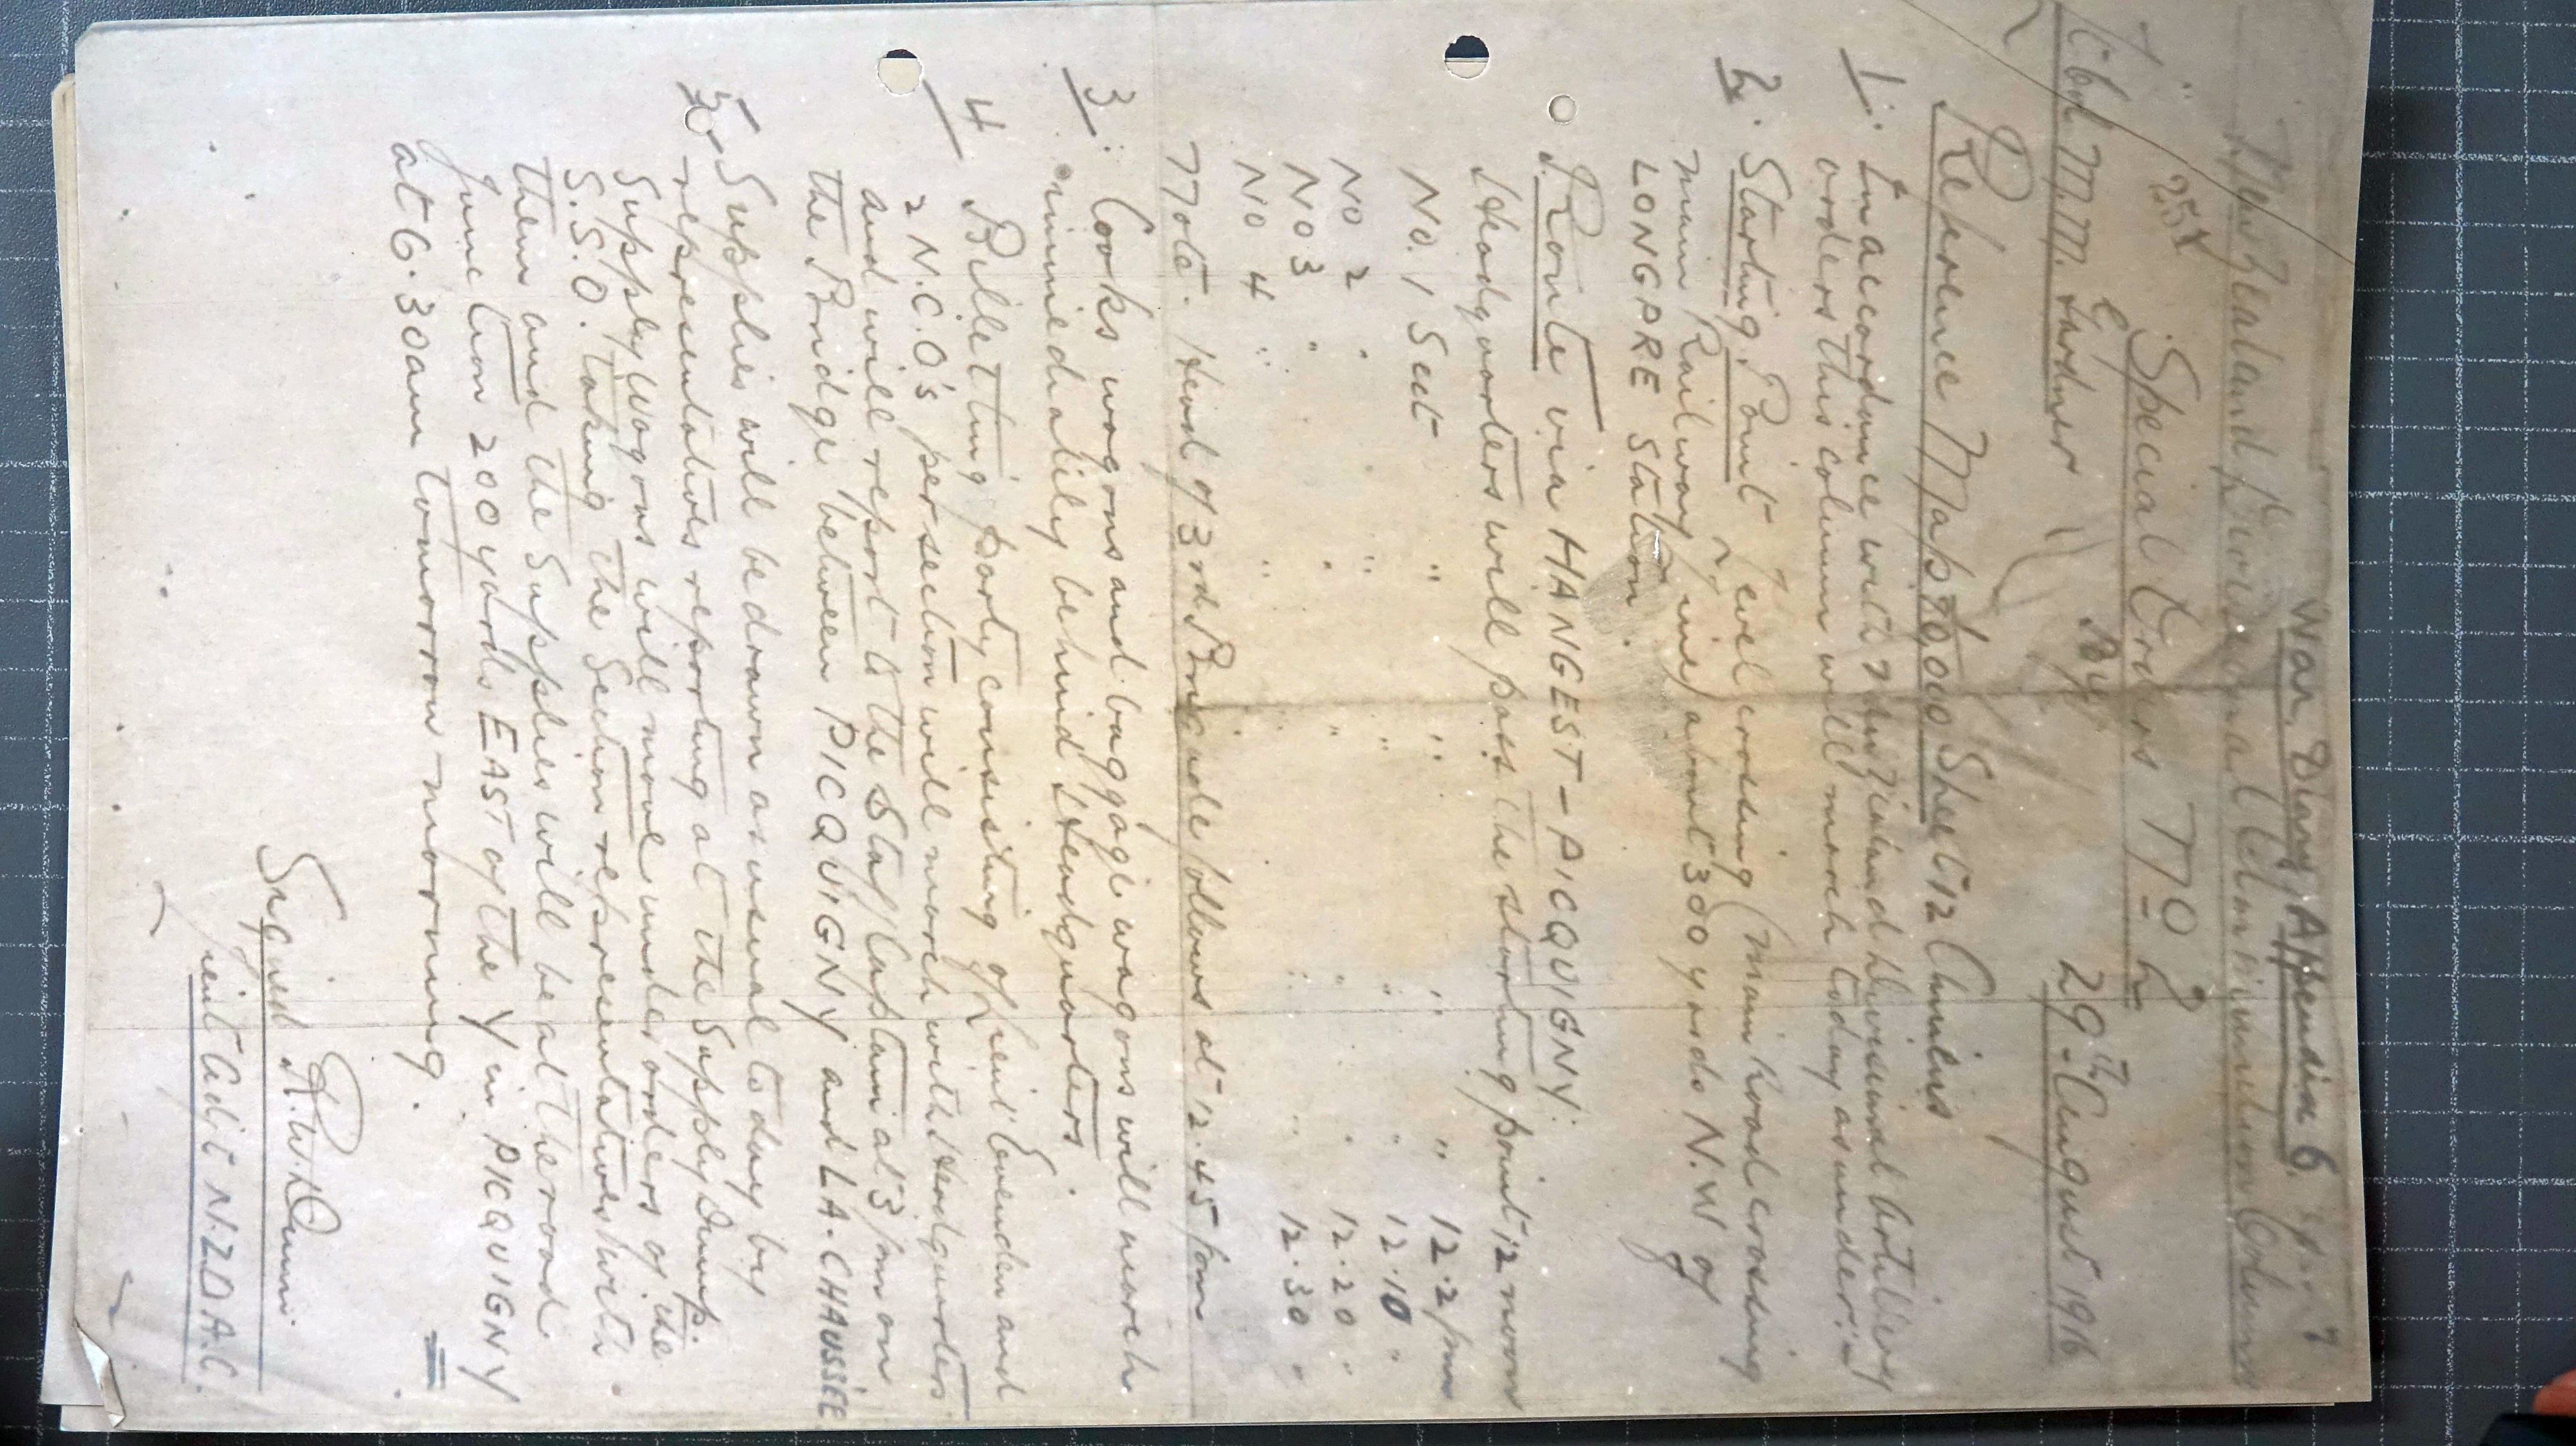 War Diary Appendix 6.
New Zealand Divisional Ammunition Column
Special Orders No 2
By
Lt Col M.M. Gardner 29th August 1916
Reference Map 80,000 Sheet 12 Amiens
1. In accordance with New Zealand Divisional Artillery
orders this column will march today as under:-
2. Starting Point Level crossing (main Road crossing
main Railway line) about 300 yards N.W of
LONGPRE Station.
Route via HANGEST - PICQUIGNY.
Headquarters will pass the starting point 12 noon
No. 1 Sect " " " " 12.2 pm
No 2 " " " " " 12.10 "
No 3 " " " " " 12.20 "
No 4 " " " " " 12.30 "
Note. Head of 3rd Brigade follows at 12.45 pm
3. Cooks wagons and baggage wagons will march
immediately behind Headquarters.
4 Billetting party consisting of Lieut Evenden and
2 N.C.O's per section will march with Headquarters
and will report to the Staff Captain at 3 pm on
the Bridge between PICQUIGNY and LA.CHAUSSÉE
5. Supplies will be drawn as usual today by
representatives reporting at the Supply Dump.
Supply Wagons will move under orders of the
S.S.O. taking the Section representatives with
them and the Supplies will be at the road
junction 200 yards EAST of the Y in PICQUIGNY
at 6.30am tomorrow morning.
Signed R.W. Dunn
Leut Adjt N.Z D A.C.